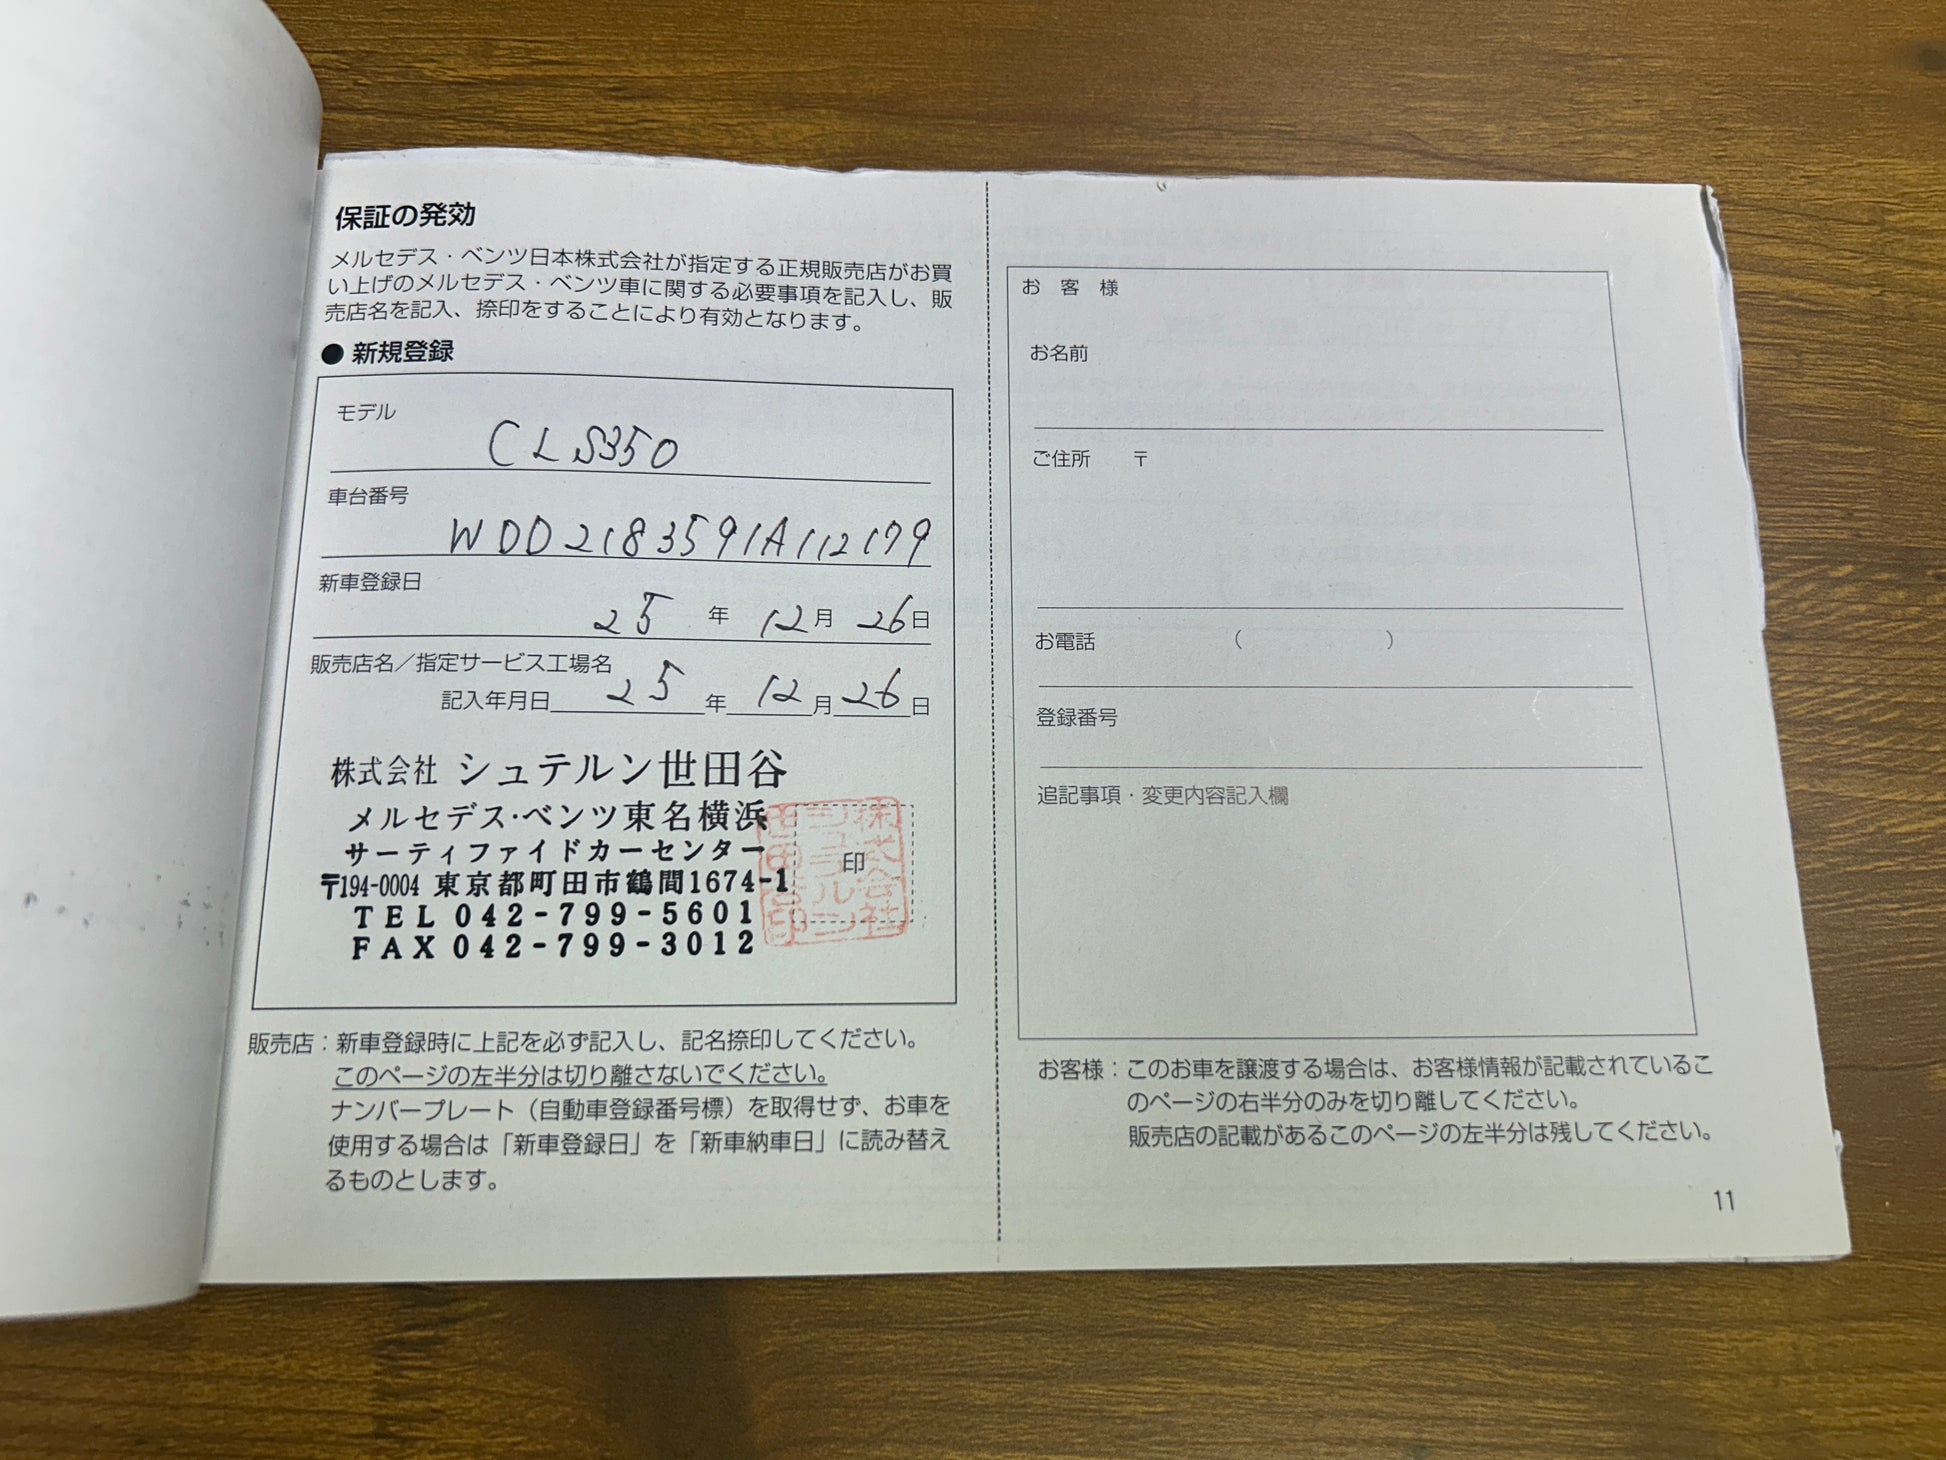 保証の発効
メルセデス・ベンツ日本株式会社が指定する正規販売店がお買
い上げのメルセデス・ベンツ車に関する必要事項を記入し、販
売店名を記入、捺印をすることにより有効となります。
● 新規登録
モデル
CLS350
車台番号
WDD2183591A112179
新車登録日
25 年 12 月 26 日
販売店名／指定サービス工場名
記入年月日 25 年 12 月 26 日
株式会社 シュテルン世田谷
メルセデス・ベンツ東名横浜
サーティファイドカーセンター
〒194-0004 東京都町田市鶴間1674-1
TEL 042-799-5601
FAX 042-799-3012
印
株式会社
シュテルン
世田谷印
販売店：新車登録時に上記を必ず記入し、記名捺印してください。
このページの左半分は切り離さないでください。
ナンバープレート（自動車登録番号標）を取得せず、お車を
使用する場合は「新車登録日」を「新車納車日」に読み替え
るものとします。
お 客 様
お名前
ご住所 〒
お電話 （ ）
登録番号
追記事項・変更内容記入欄
お客様：このお車を譲渡する場合は、お客様情報が記載されているこ
のページの右半分のみを切り離してください。
販売店の記載があるこのページの左半分は残してください。
11